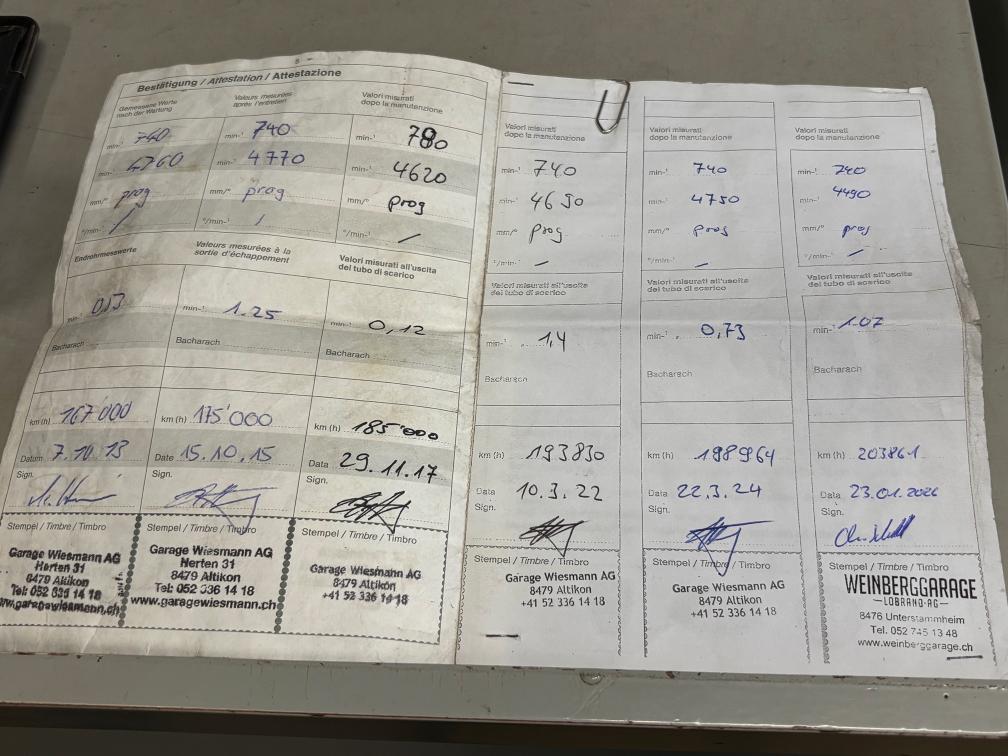 Bestätigung / Attestation / Attestazione
Gemessene Werte
nach der Wartung
min-¹ 740
min-¹ 4760
mm/° prog
°/min-¹ /
Endrohrmesswerte
min-¹ 0,13
Bacharach
km (h) 167'000
Datum 7.10.13
Sign.
Stempel / Timbre / Timbro
Garage Wiesmann AG
Herten 31
8479 Altikon
Tel: 052 336 14 18
www.garagewiesmann.ch
Valeurs mesurées
après l'entretien
min-¹ 740
min-¹ 4770
mm/° prog
°/min-¹ /
Valeurs mesurées à la
sortie d'échappement
min-¹ 1.25
Bacharach
km (h) 175'000
Date 15.10.15
Sign.
Stempel / Timbre / Timbro
Garage Wiesmann AG
Herten 31
8479 Altikon
Tel: 052 336 14 18
www.garagewiesmann.ch
Valori misurati
dopo la manutenzione
min-¹ 780
min-¹ 4620
mm/° prog
°/min-¹ /
Valori misurati all'uscita
del tubo di scarico
min-¹ 0,12
Bacharach
km (h) 185'000
Data 29.11.17
Sign.
Stempel / Timbre / Timbro
Garage Wiesmann AG
8479 Altikon
+41 52 336 14 18
Valori misurati
dopo la manutenzione
min-¹ 740
min-¹ 4690
mm/° prog
°/min- /
Valori misurati all'uscita
del tubo di scarico
min-¹ 1,4
Bacharach
km (h) 193830
Data 10.3.22
Sign.
Stempel / Timbre / Timbro
Garage Wiesmann AG
8479 Altikon
+41 52 336 14 18
Valori misurati
dopo la manutenzione
min-¹ 740
min-¹ 4750
mm/° prog
°/min- /
Valori misurati all'uscita
del tubo di scarico
min-¹ 0,73
Bacharach
km (h) 198964
Data 22.3.24
Sign.
Stempel / Timbre / Timbro
Garage Wiesmann AG
8479 Altikon
+41 52 336 14 18
Valori misurati
dopo la manutenzione
min-¹ 740
min-¹ 4490
mm/° prog
°/min-¹ /
Valori misurati all'uscita
del tubo di scarico
min-¹ 1.07
Bacharach
km (h) 203861
Data 23.01.2026
Sign.
Stempel / Timbre / Timbro
WEINBERGGARAGE
LOBRANO AG
8476 Unterstammheim
Tel. 052 745 13 48
www.weinberggarage.ch